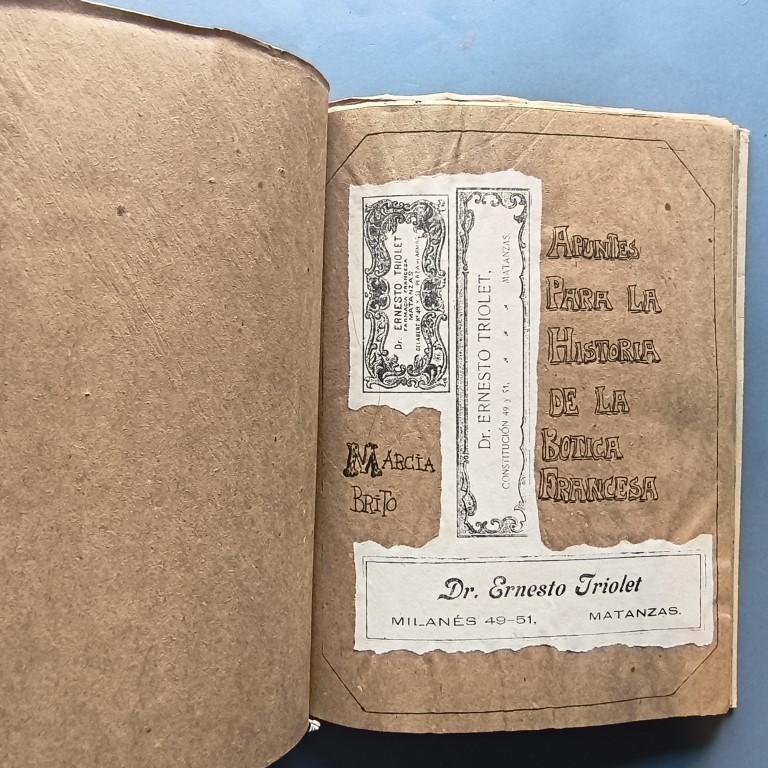 Dr. ERNESTO TRIOLET
FARMACIA FRANCESA
MATANZAS
Dr. ERNESTO TRIOLET,
CONSTITUCIÓN 49 y 51, MATANZAS
APUNTES
PARA LA
HISTORIA
DE LA
BOTICA
FRANCESA
MARCIA
BRITO
Dr. Ernesto Triolet
MILANÉS 49-51, MATANZAS.